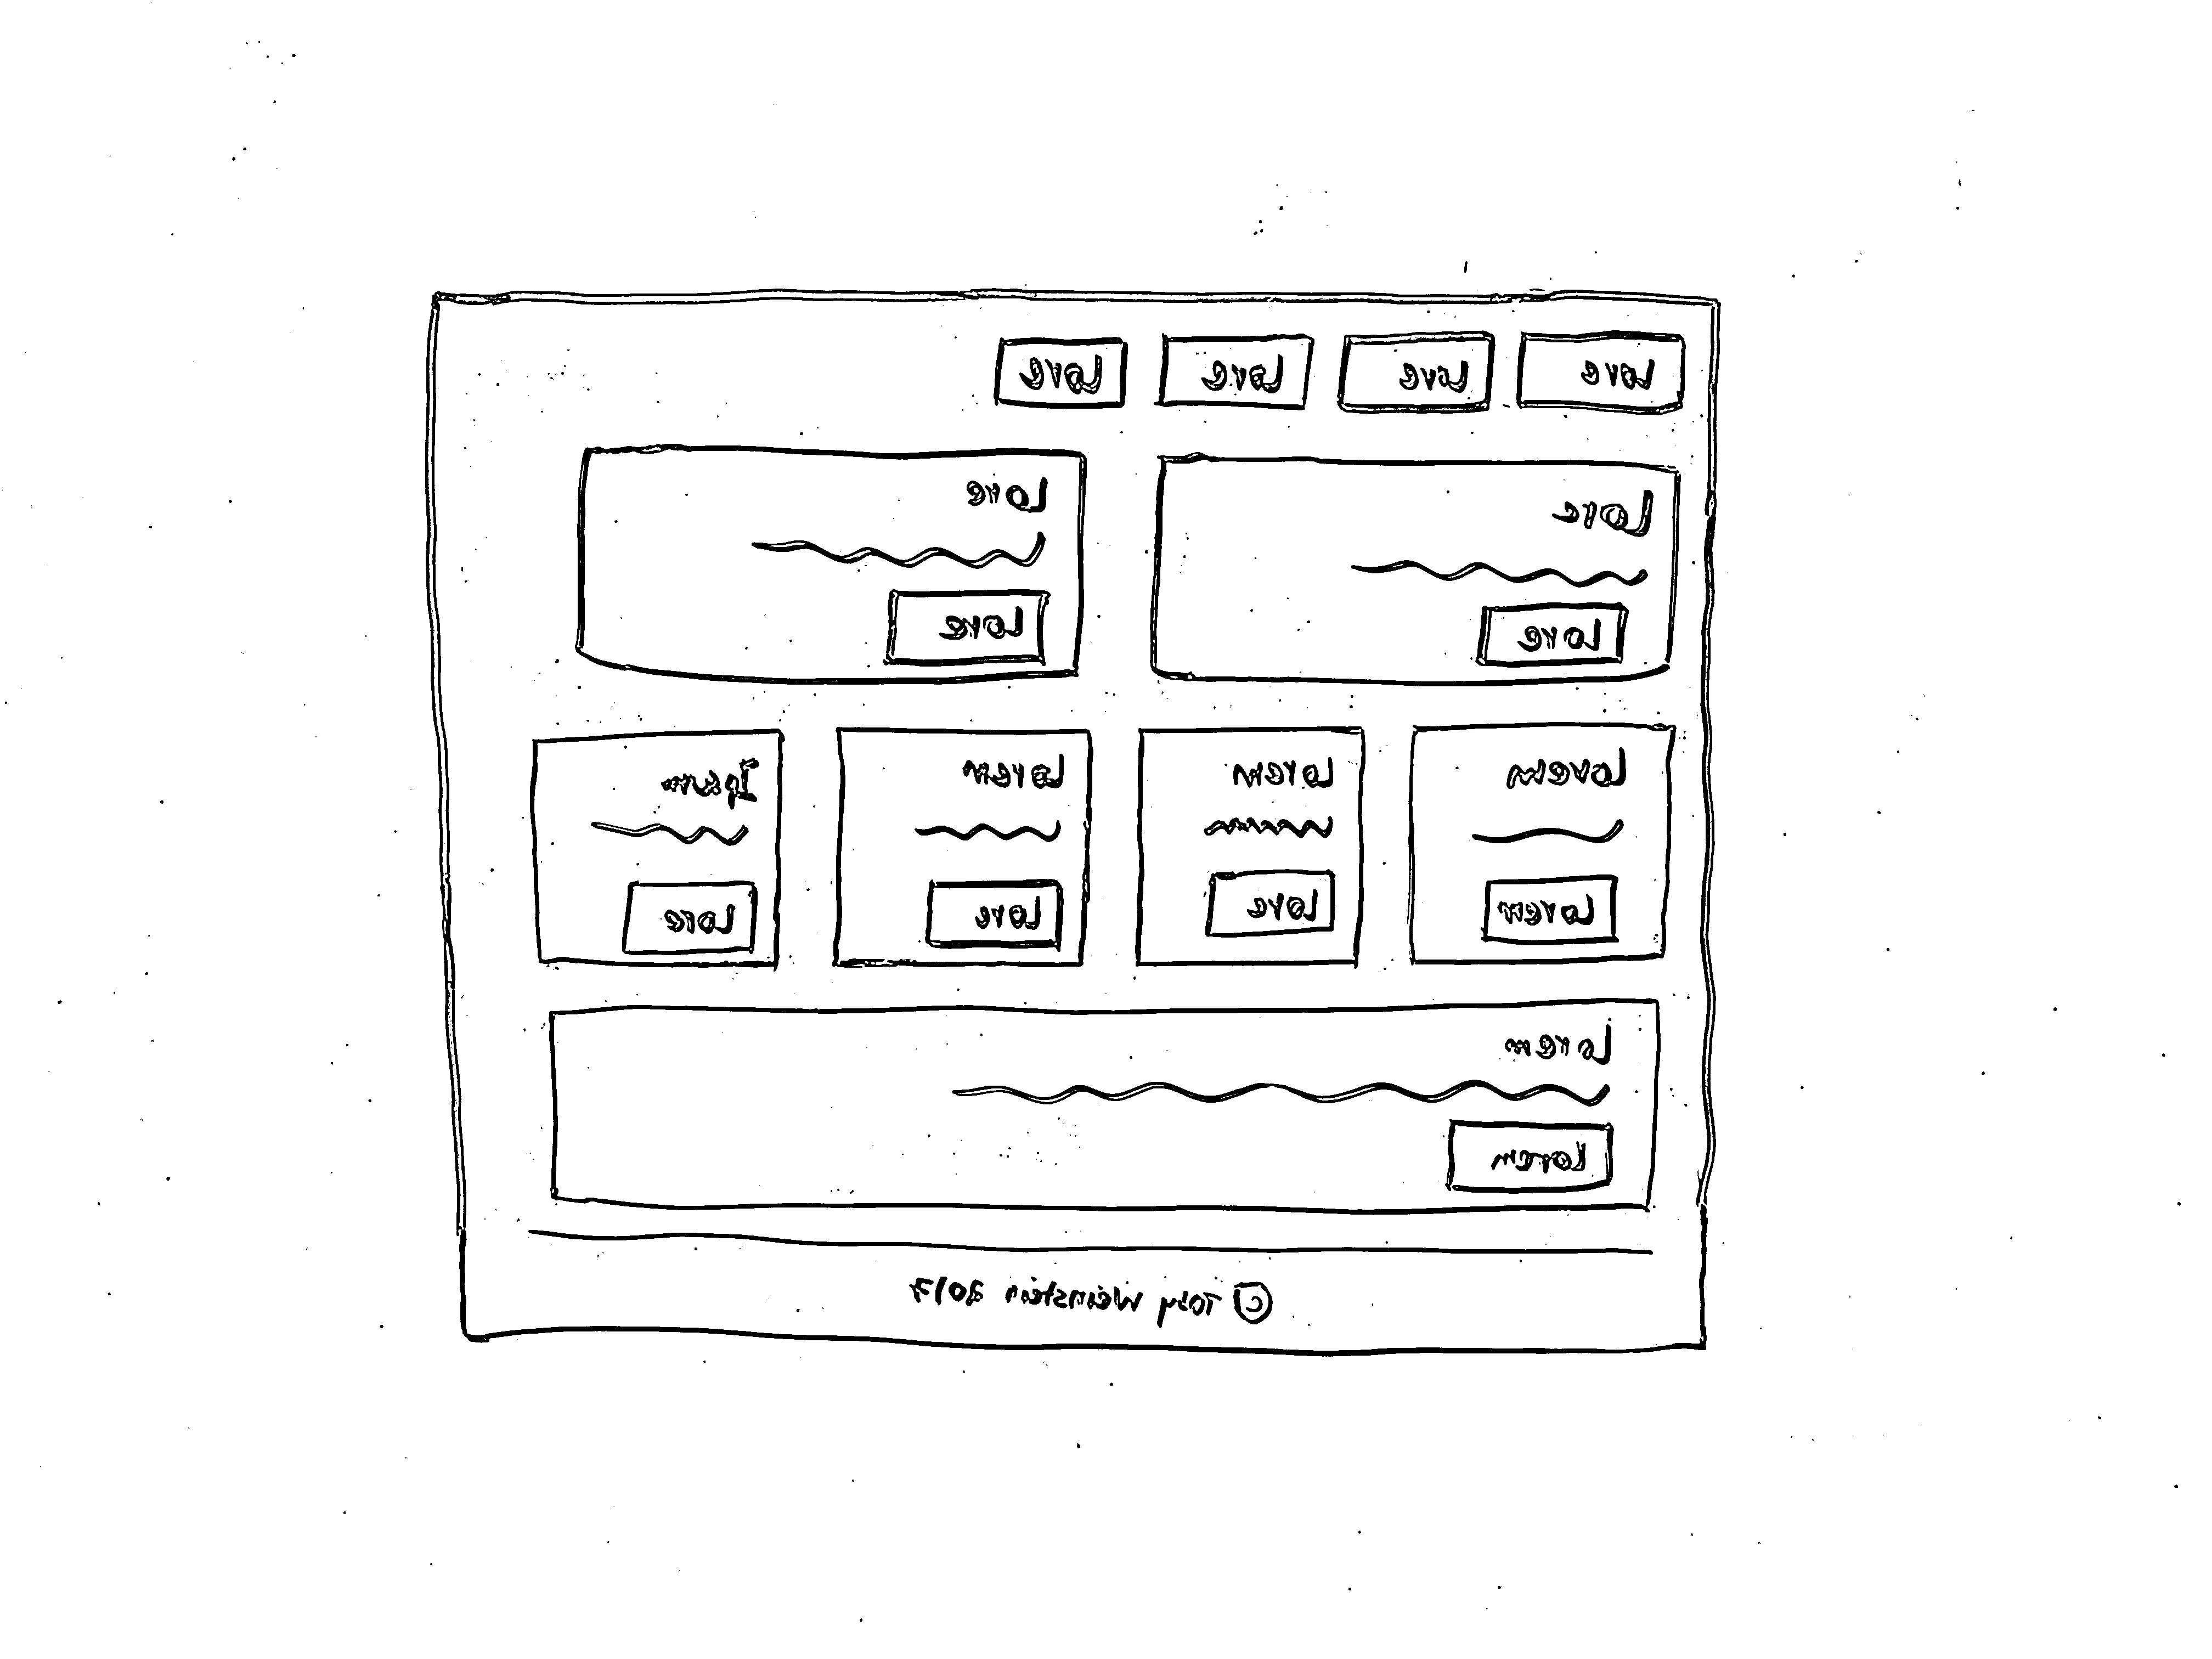 Lore Lore Lore Lore
Lore
Lore
Lore
Lore
Lorem
Lorem
Lorem
Lore
Lorem
Lore
Ipsum
Lore
Lorem
Lorem
© Weinstein 2017